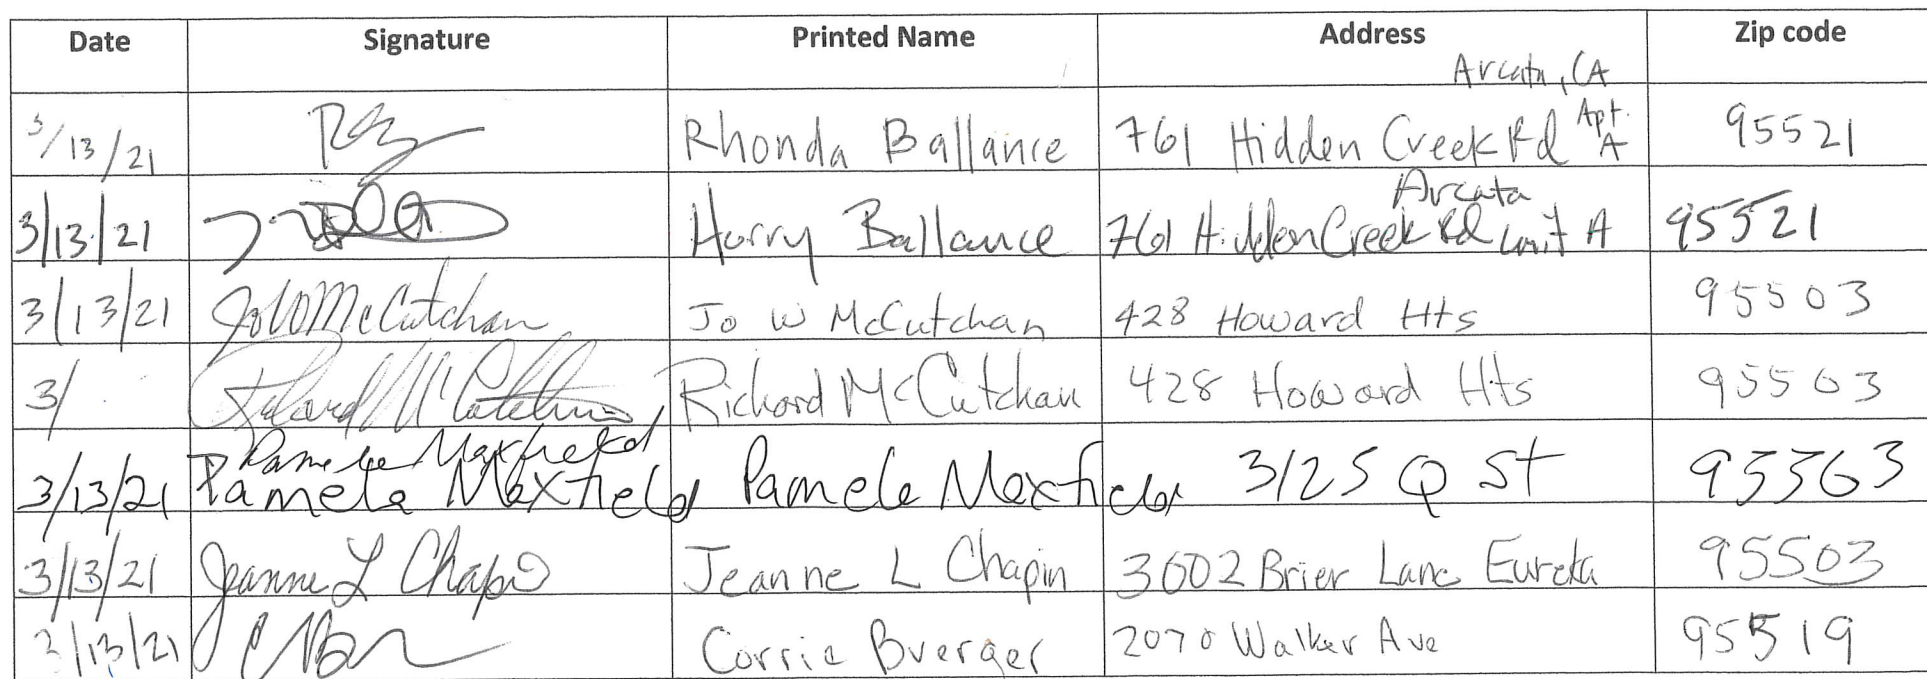 Date Signature Printed Name Address Zip code
Arcata, CA
3/13/21 Rhonda Ballance 761 Hidden Creek Rd Apt. A 95521
Arcata
3/13/21 Harry Ballance 761 Hidden Creek Rd Unit A 95521
3/13/21 Jo W McCutchan Jo W McCutchan 428 Howard Hts 95503
3/ Richard McCutchan Richard McCutchan 428 Howard Hts 95503
Pamela Maxfield
3/13/21 Pamela Maxfield Pamela Maxfield 3125 Q St 95503
3/13/21 Jeanne L Chapin Jeanne L Chapin 3602 Brier Lane Eureka 95503
3/13/21 Corrie Buerger 2070 Walker Ave 95519